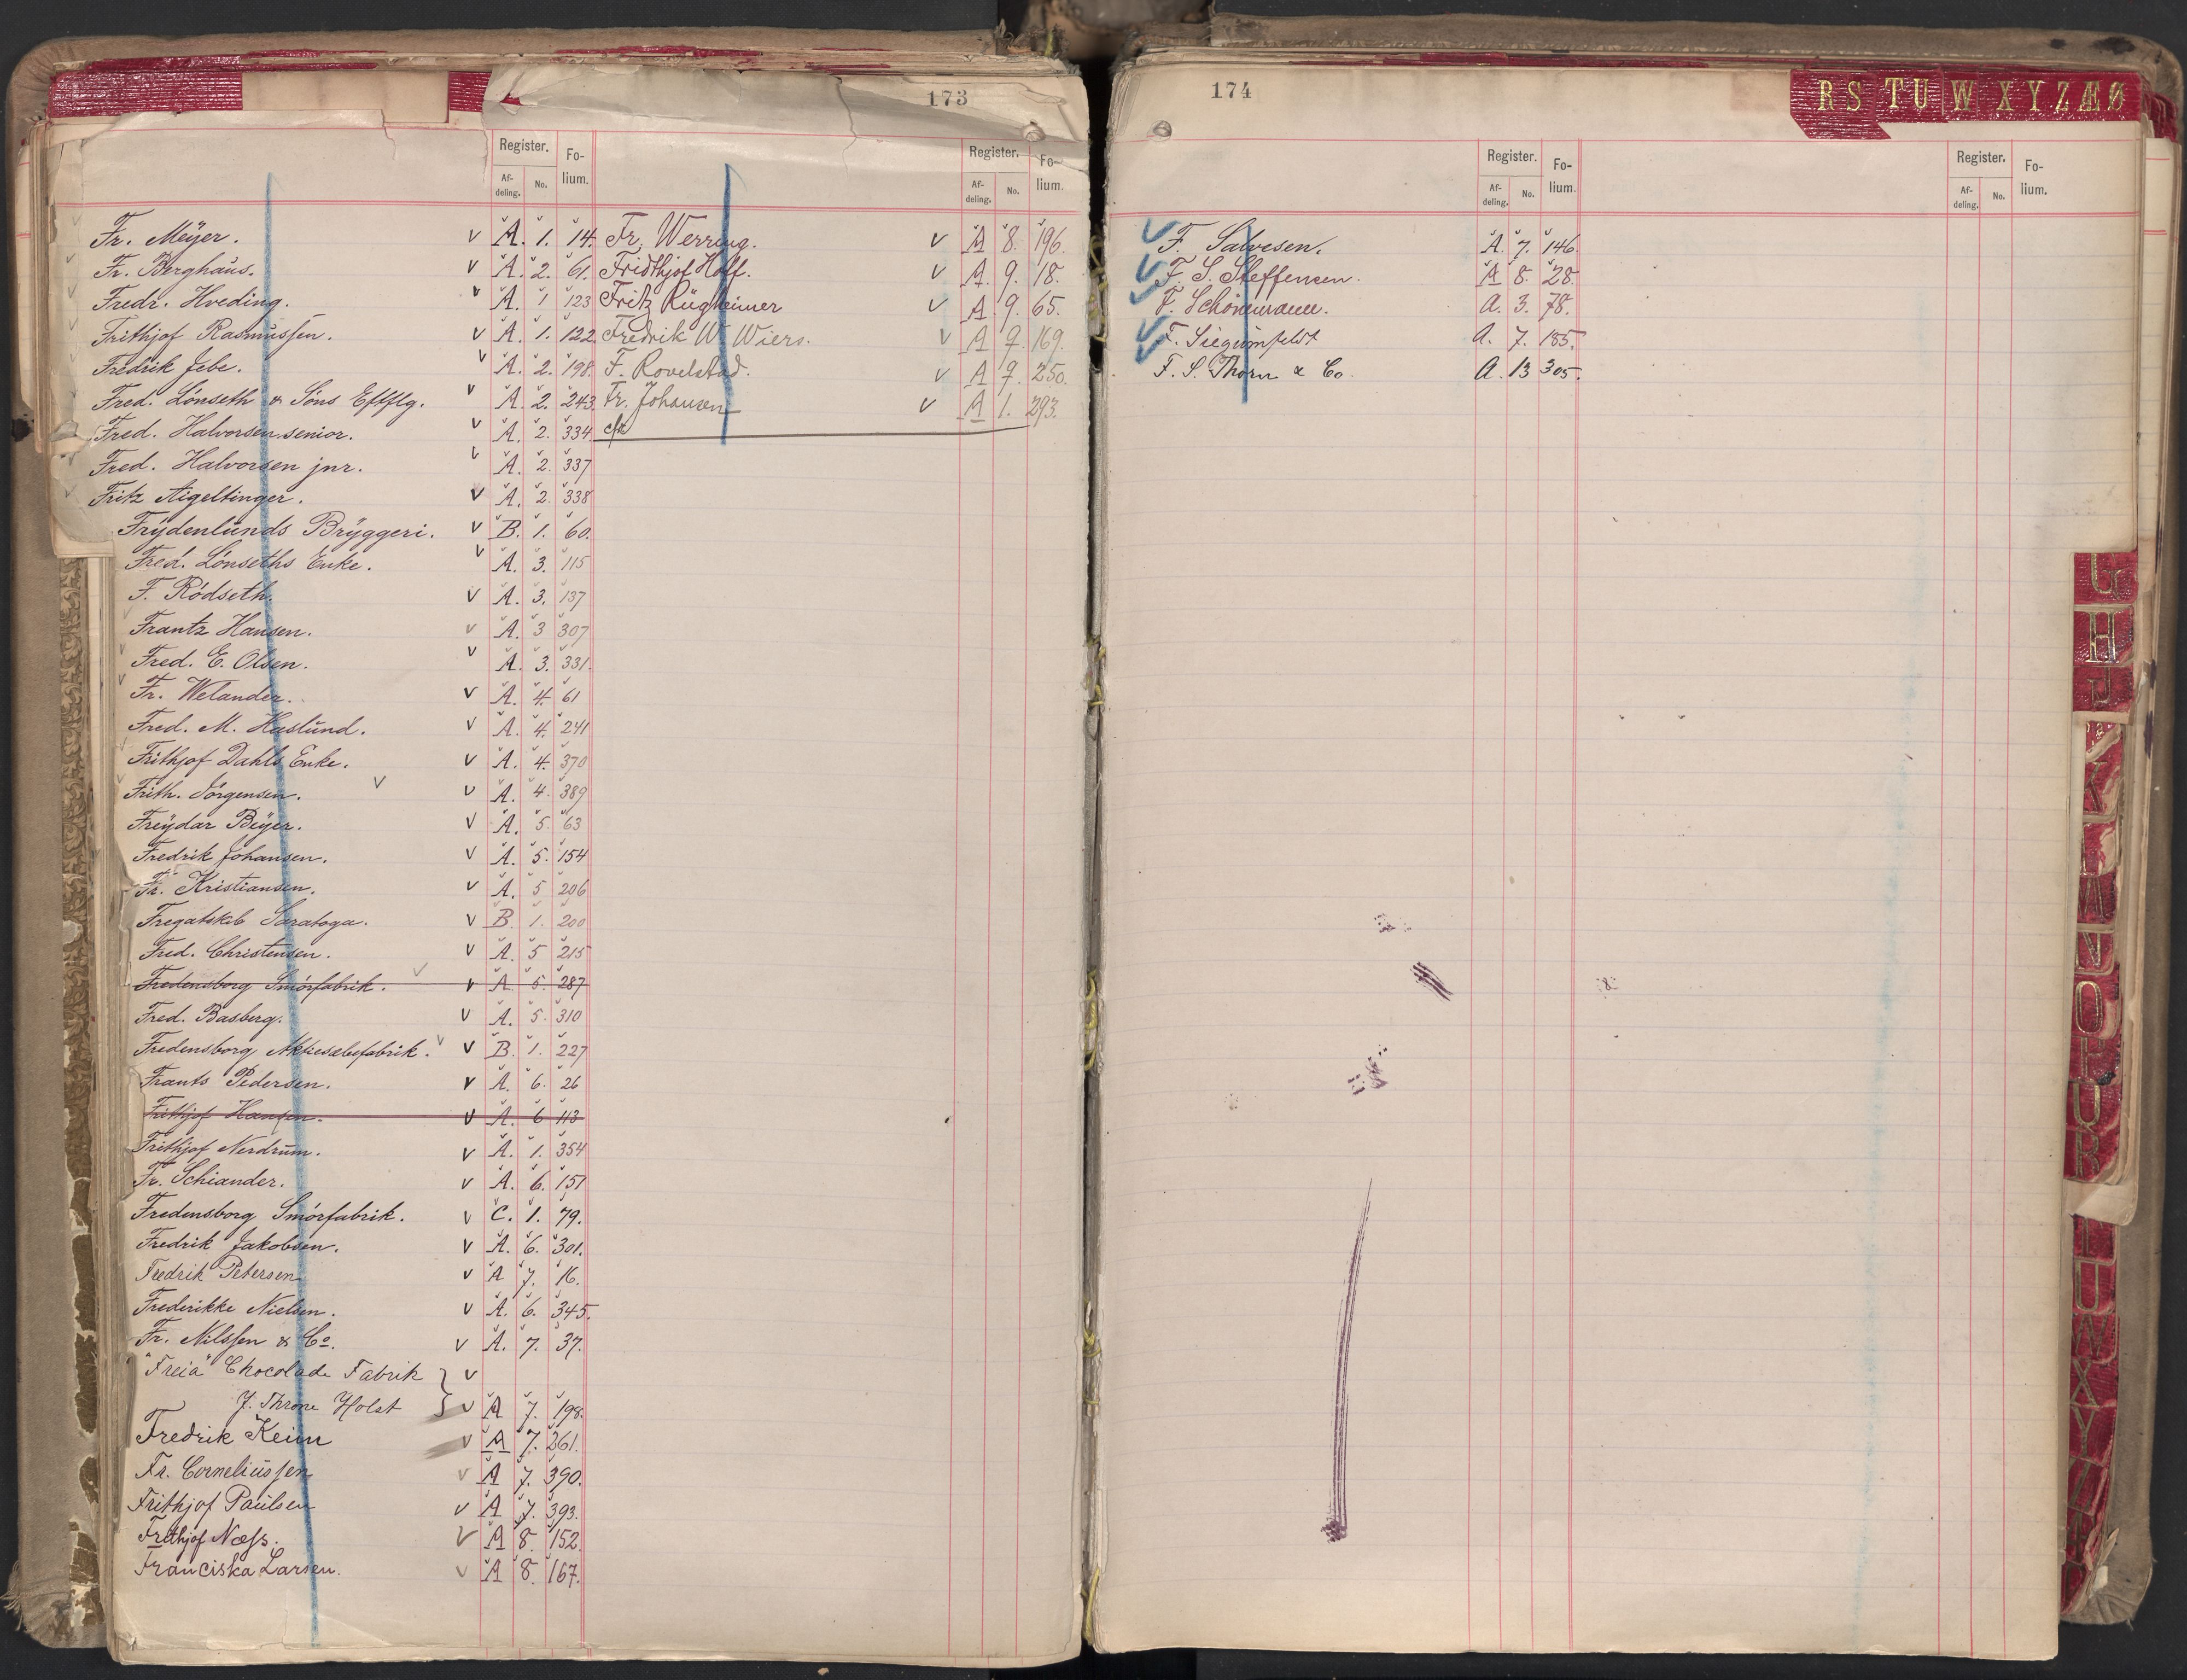 173
Register. Folium.
Afdeling. No.
Fr. Meÿer. v A. 1. 14.
Fr. Berghaus. v A. 2. 61.
Fredr. Hveding. v A. 1 123
Frithjof Rasmussen. v A. 1. 122
Fredrik Jebe. v A. 2. 198.
Fred. Lönseth & Söns Eftflg. v A. 2. 243.
Fred. Halvorsen senior. v A. 2. 334.
Fred. Halvorsen jnr. v A. 2. 337
Fritz Aigeltinger. v A. 2. 338
Frÿdenlunds Brÿggeri. v B. 1. 60.
Fred. Lönseths Enke. v A. 3. 115
F. Rödseth. v A. 3. 137
Frantz Hansen. v A. 3 307
Fred. E. Olsen. v A. 3. 331.
Fr. Welander. v A. 4. 61
Fred. M. Haslund. v A. 4. 241
Frithjof Dahls Enke. v A. 4. 370
Frith. Jörgensen. v v A. 4. 389
Freÿdar Beÿer. v A. 5. 63
Fredrik Johansen. v A. 5. 154
Fr. Kristiansen. v A. 5 206
Fregatskib Saratoga. v B. 1. 200
Fred. Christensen. v A. 5 215
Fredensborg Smörfabrik. v v A. 5. 287
Fred. Basberg. v A. 5. 310
Fredensborg Aktiesæbefabrik. v v B. 1. 227
Frants Pedersen. v A. 6. 26
Frithjof Hansen. v A. 6 113
Frithjof Nerdrum. v A. 1. 354
Fr. Schiander. v A. 6. 151
Fredensborg Smörfabrik. v C. 1. 79.
Fredrik Jakobsen. v A. 6. 301.
Fredrik Petersen v A 7. 16.
Frederikke Nielsen. v A. 6. 345.
Fr. Nilssen & Co. v A. 7. 37.
"Freia" Chocolade Fabrik } v
J. Throne Holst } v A 7. 198.
Fredrik Keim v A 7. 261.
Fr. Corneliussen v A 7. 390.
Frithjof Paulsen v A 7. 393.
Frithjof Næss. v A 8. 152.
Franciska Larsen. v A 8. 167.
Register. Folium.
Afdeling. No.
Fr. Werring. v A 8. 196.
Fridthjof Hoff. v A. 9. 18.
Fritz Rügheimer v A. 9. 65.
Fredrik W. Wiers. v A 9. 169.
F. Rovelstad. v A 9. 250.
Fr. Johansen v A 1. 293.
174
Register. Folium.
Afdeling. No.
F. Salvesen. A. 7. 146.
F. S. Steffensen. A 8. 28.
F. Schönemann. A. 3. 78.
F. Siegumfeldt A. 7. 185.
F. S. Thorn & Co. A. 13 305.
Register. Folium.
Afdeling. No.
R S T U W X Y Z Æ Ø
G
H
J
K
L
M
N
O
P
U
R
T
U
W
X
Y
Z